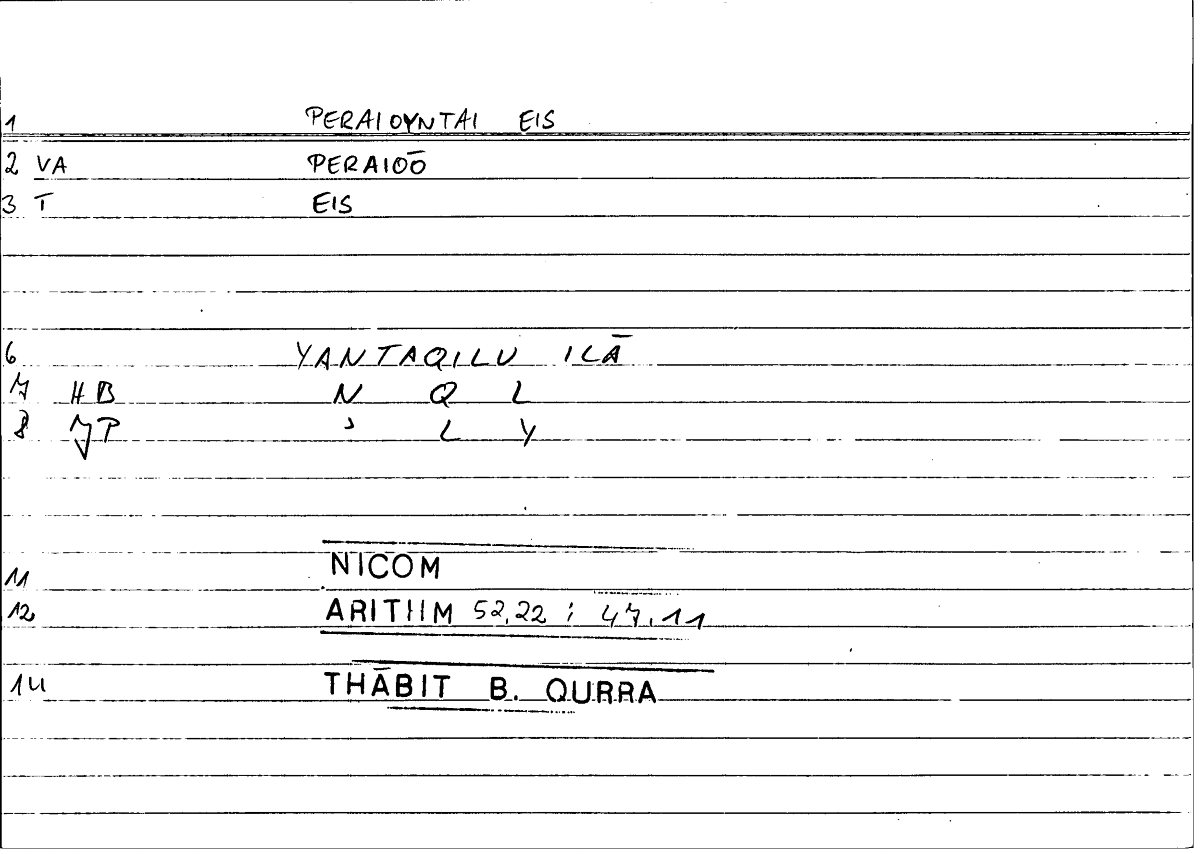 1 PERAIOYNTAI EIS
2 VA PERAIOŌ
3 T EIS
6 YANTAQILU ILĀ
7 HB N Q L
8 JP ʾ L Y
11 NICOM
12 ARITHM 52,22 ; 47,11
14 THĀBIT B. QURRA